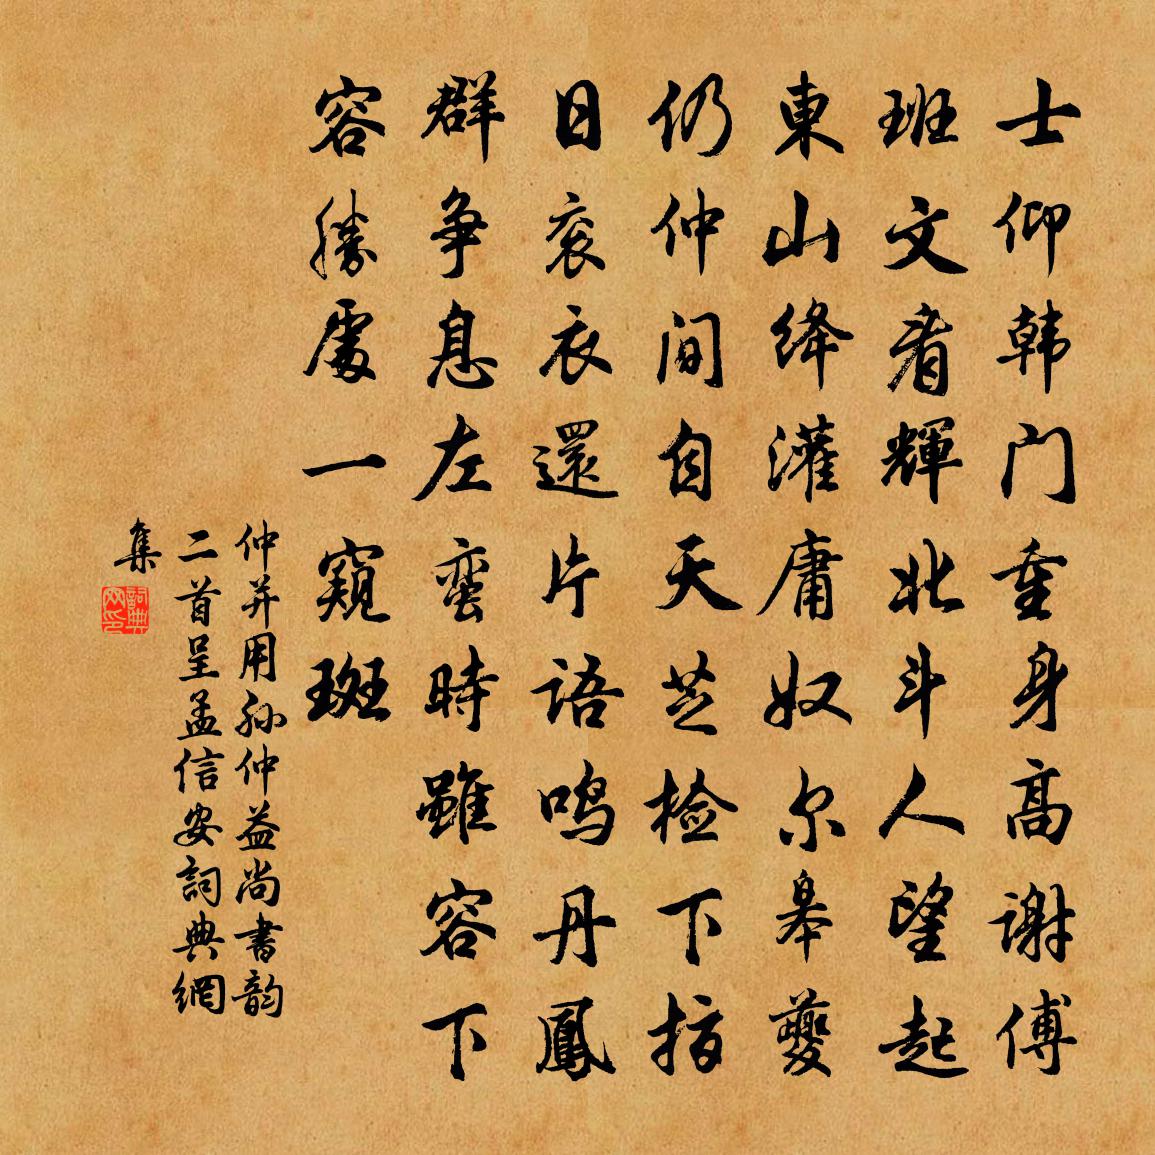 士仰韩门重身高谢傅
班文看輝北斗人望起
東山绛灌庸奴尔皋夔
仍仲间自天芝检下指
日衮衣還片语鸣丹鳳
群争息左蛮時雖容下
容勝處一窥斑
仲并用孙仲益尚書韵
二首呈孟信安詞典網
集
詞典网印